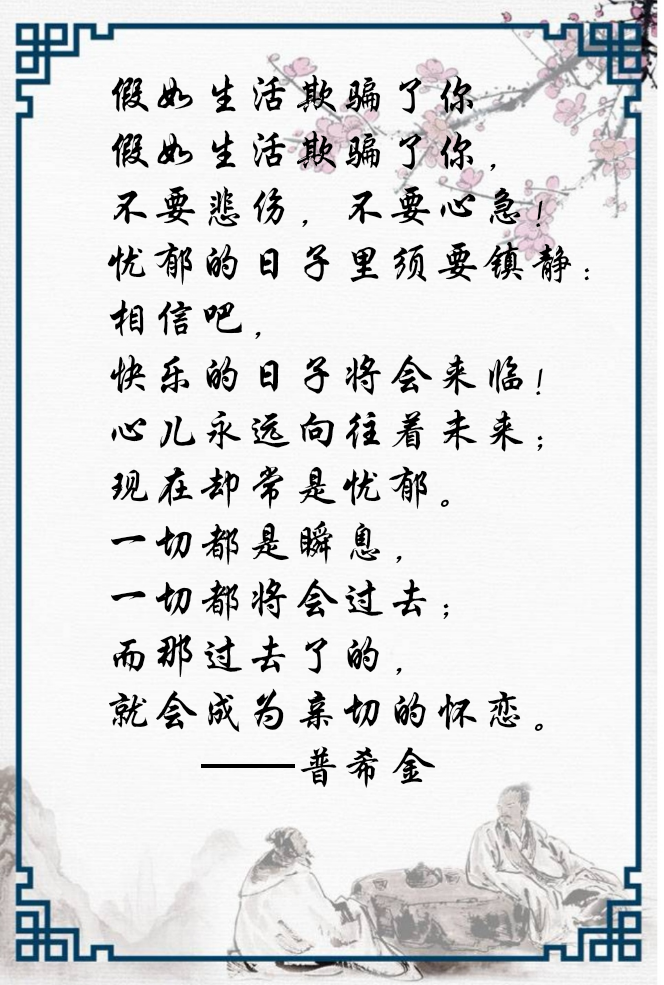 假如生活欺骗了你
假如生活欺骗了你，
不要悲伤，不要心急！
忧郁的日子里须要镇静：
相信吧，
快乐的日子将会来临！
心儿永远向往着未来；
现在却常是忧郁。
一切都是瞬息，
一切都将会过去；
而那过去了的，
就会成为亲切的怀恋。
——普希金